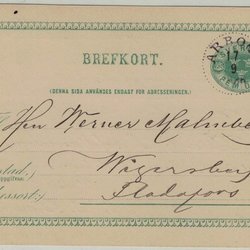 BREFKORT.
(DENNA SIDA ANVÄNDES ENDAST FÖR ADRESSERINGEN.)
ARBOG
17
9
Herr Werner Malmber
stad,
Wigersberg
Flodafors
dessort: